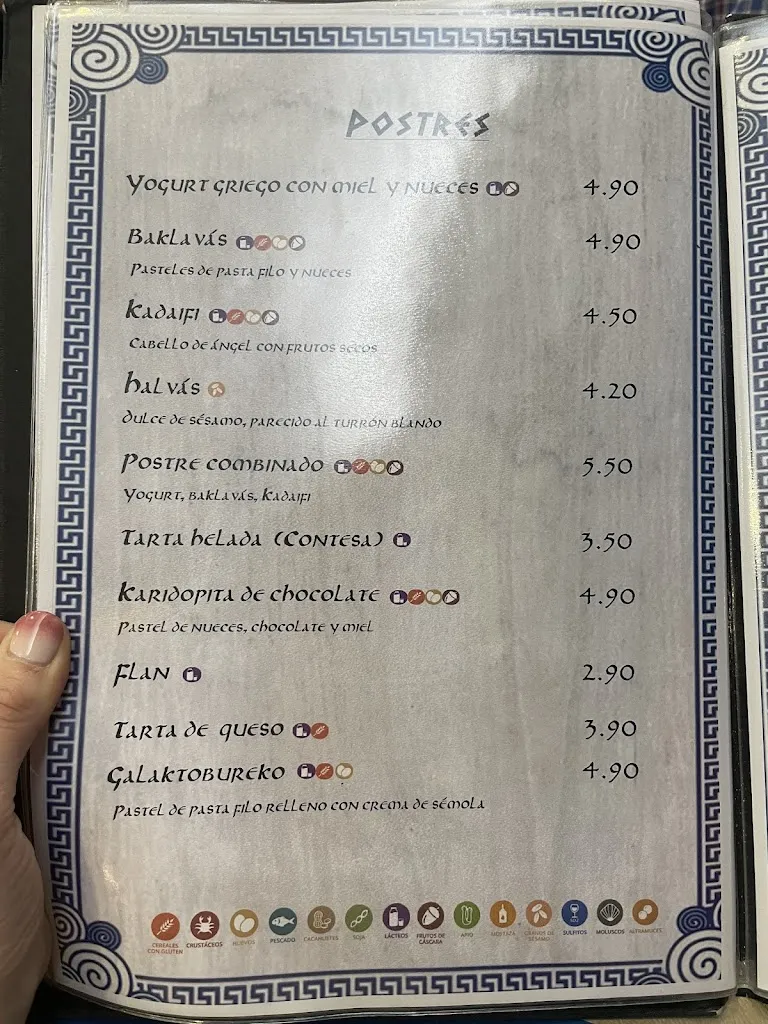 POSTRES
YOGURT GRIEGO CON MIEL Y NUECES 4.90
BAKLAVÁS 4.90
PASTELES DE PASTA FILO Y NUECES
KADAIFI 4.50
CABELLO DE ÁNGEL CON FRUTOS SECOS
HALVÁS 4.20
DULCE DE SÉSAMO, PARECIDO AL TURRÓN BLANDO
POSTRE COMBINADO 5.50
YOGURT, BAKLAVÁS, KADAIFI
TARTA HELADA (CONTESA) 3.50
KARIDOPITA DE CHOCOLATE 4.90
PASTEL DE NUECES, CHOCOLATE Y MIEL
FLAN 2.90
TARTA DE QUESO 3.90
GALAKTOBUREKO 4.90
PASTEL DE PASTA FILO RELLENO CON CREMA DE SÉMOLA
CEREALES CON GLUTEN CRUSTÁCEOS HUEVOS PESCADO CACAHUETES SOJA LÁCTEOS FRUTOS DE CÁSCARA APIO MOSTAZA GRANOS DE SÉSAMO SULFITOS MOLUSCOS ALTRAMUCES